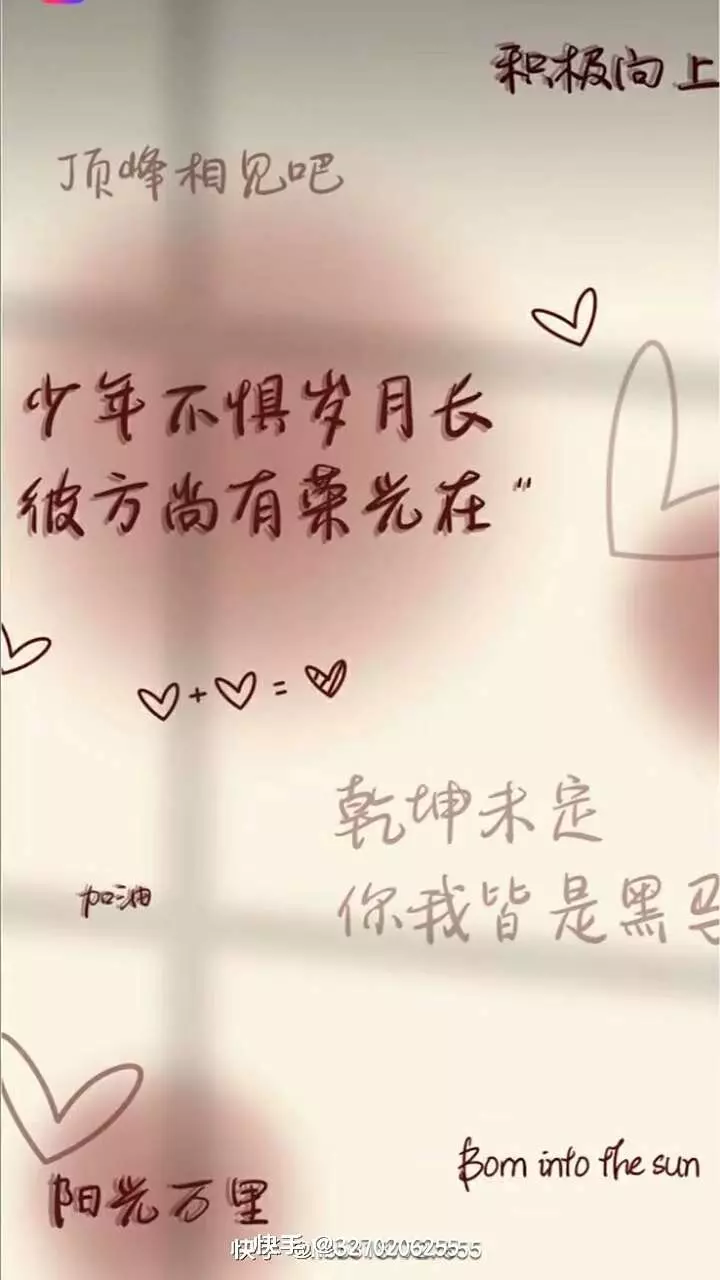 积极向上
顶峰相见吧
少年不惧岁月长
彼方尚有荣光在"
+ =
乾坤未定
你我皆是黑马
加油
Born into the sun
阳光万里
快手